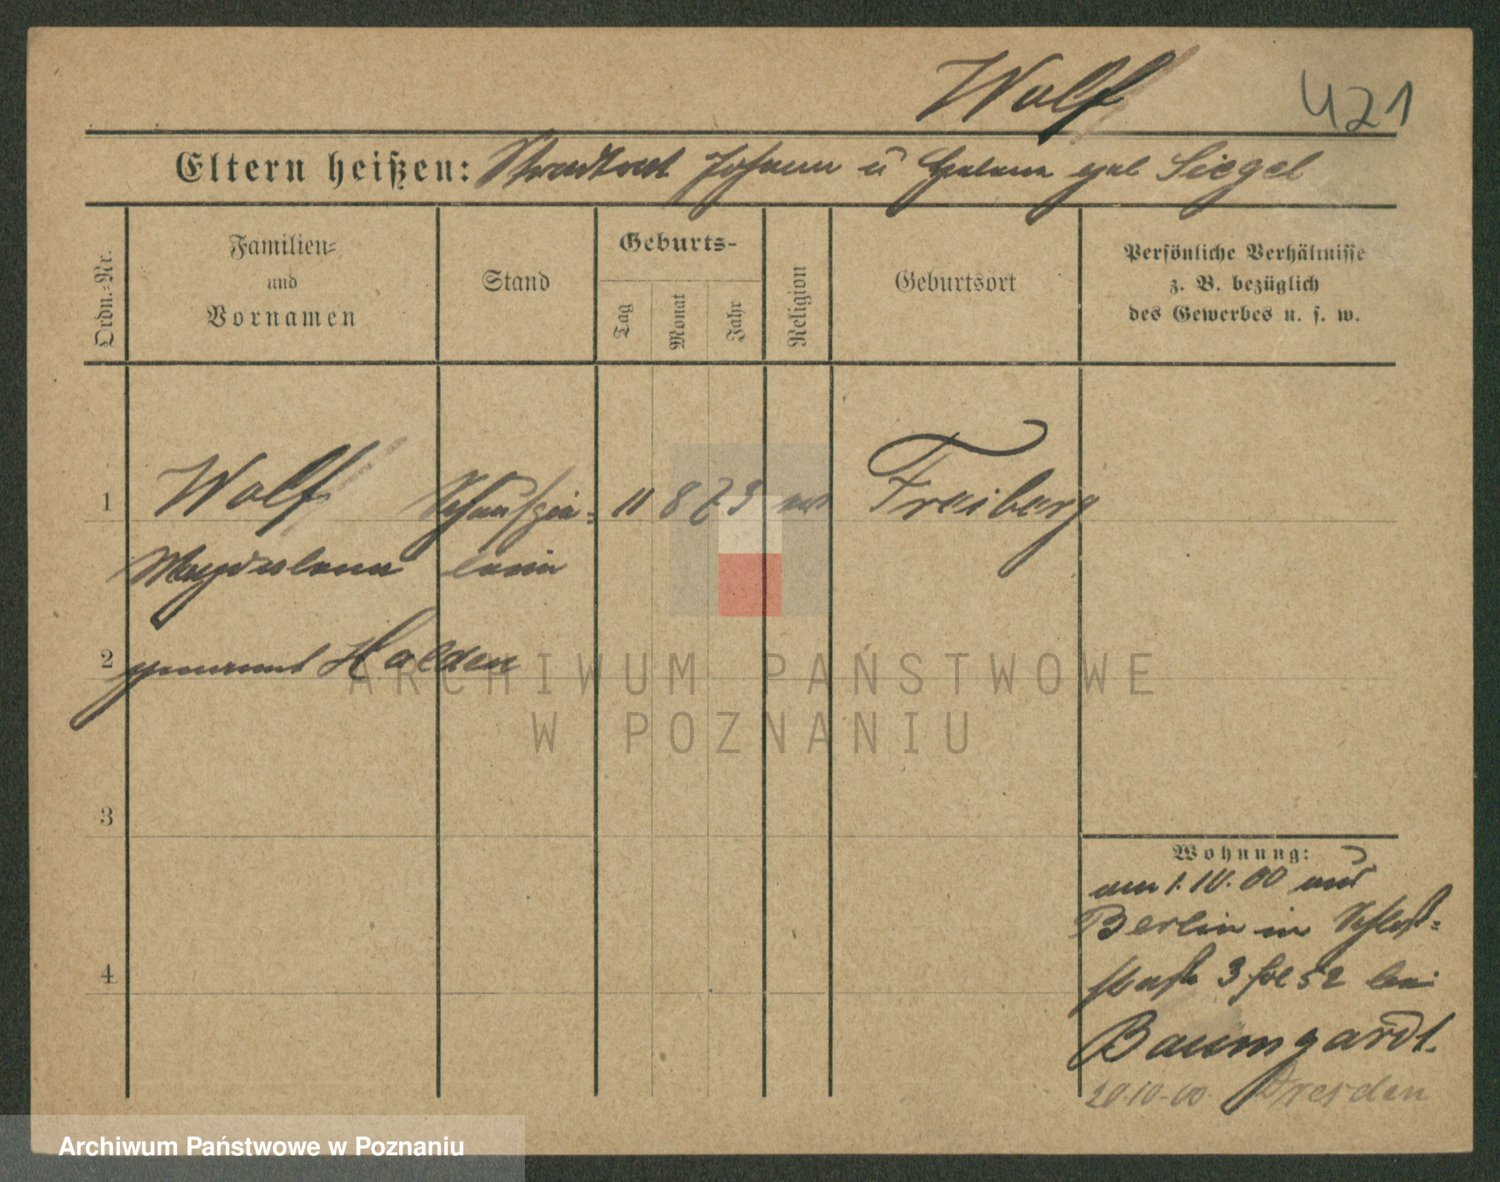 Wolf 421
Eltern heißen: Stadtrat Johann u Helene geb Siegel
Ordn.-Nr.
Familien-
und
Vornamen
Stand
Geburts-
Tag
Monat
Jahr
Religion
Geburtsort
Persönliche Verhältnisse
z. B. bezüglich
des Gewerbes u. s. w.
1 Wolf Schauspie- 11 8 73 Freiberg
Magdalena lerin
2 genannt Halden
3
4
Wohnung:
am 1.10.00 aus
Berlin in Schloß-
straße 3 bei
Baumgardt.
20.10.00. Dresden
ARCHIWUM PAŃSTWOWE
W POZNANIU
Archiwum Państwowe w Poznaniu